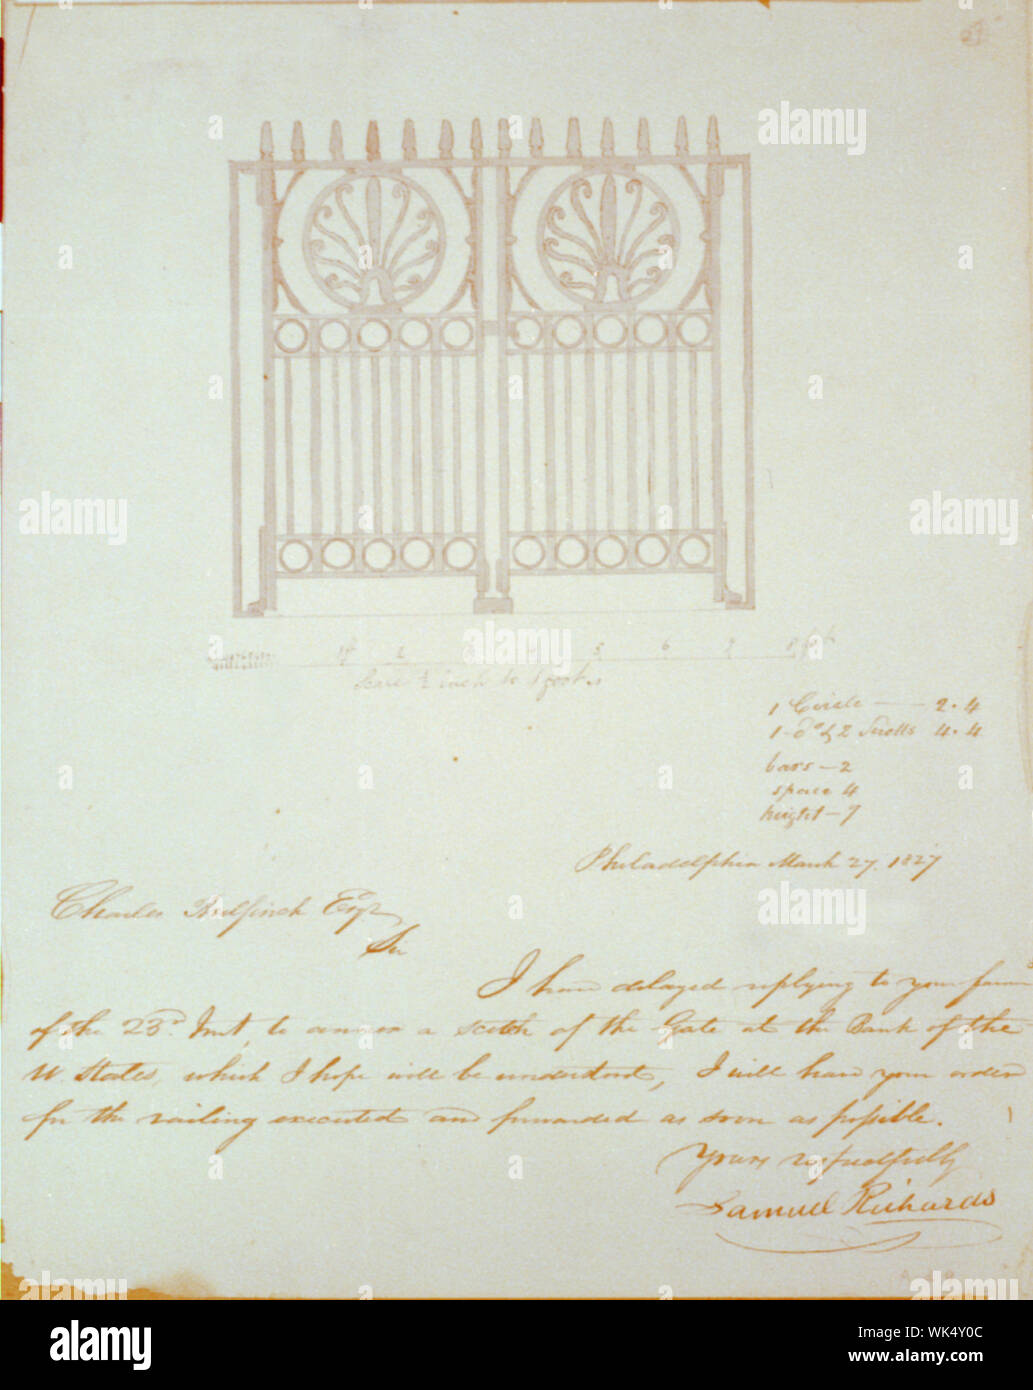 1ft 2 3 4 5 6 7 8 feet
Scale ½ inch to 1 foot
1 Circle — 2.4
1 do & 2 Scrolls 4.4
bars — 2
space 4
height — 7
Philadelphia March 27. 1827
Charles Bulfinch Esqr
Sir
I have delayed replying to your favor
of the 23d Inst, to annex a scetch of the Gate at the Bank of the
U. States, which I hope will be understood, I will have your order
for the railing executed and forwarded as soon as possible.
Yours respectfully
Samuel Richards
alamy
Image ID: WK4Y0C
www.alamy.com